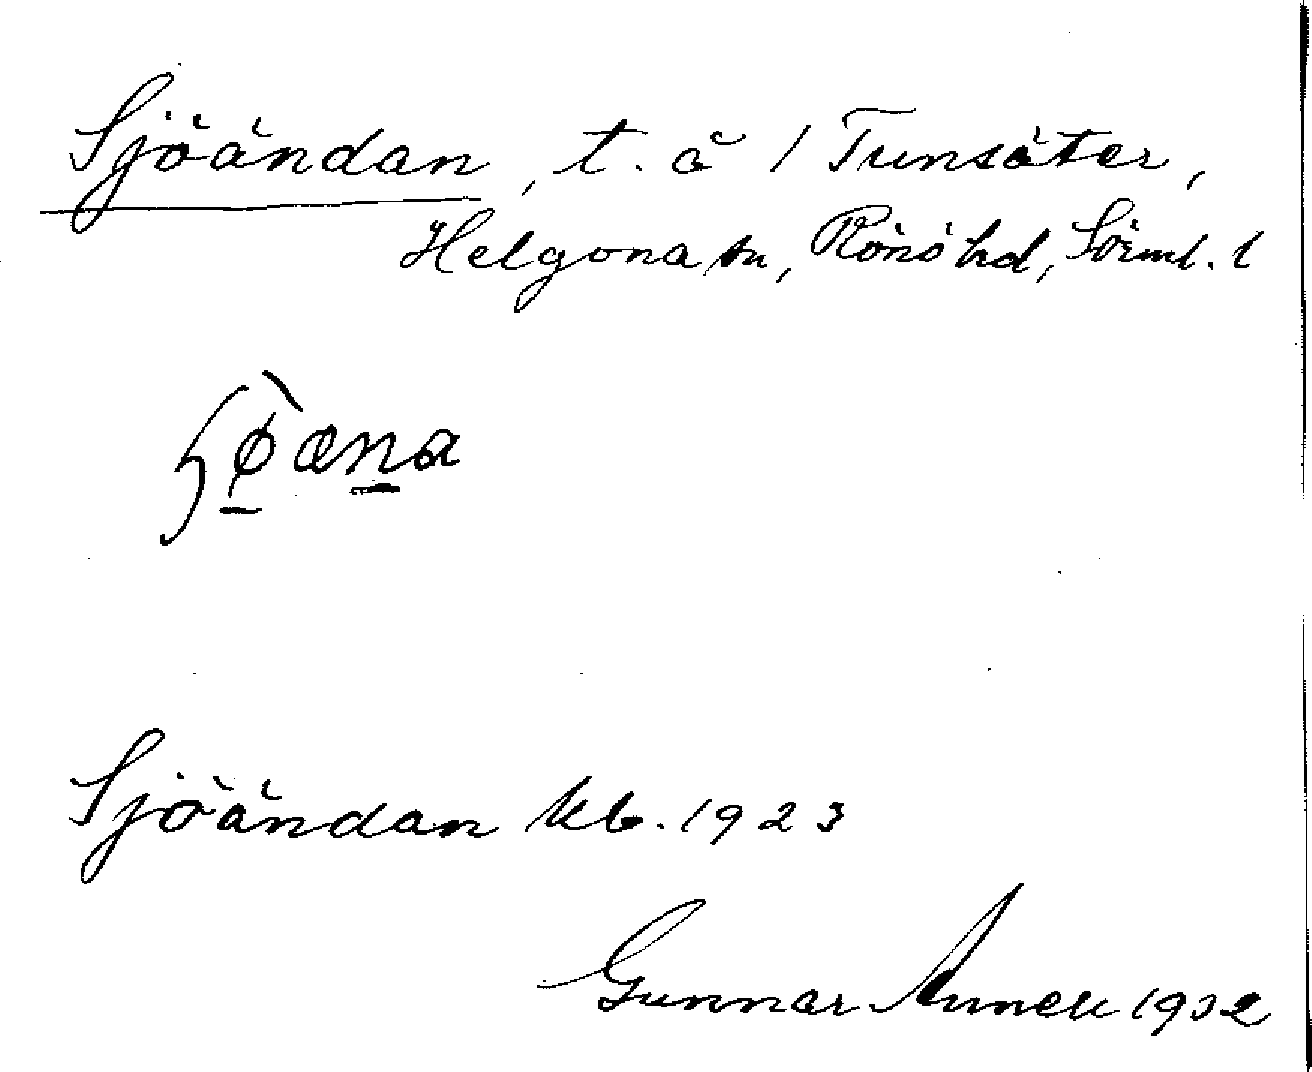 Sjöändan, t. å 1 Tunsäter,
Helgona sn, Rönö hd, Sörml. l
Sjöändan kb. 1923
Gunnar 1932